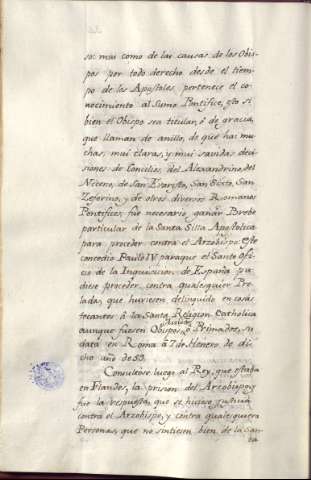 so: mas como de las causas de los Obis-
pos por todo derecho desde el tiem-
po de los Apostoles, pertenece el co-
nocimiento al Sumo Pontifice, esto si
bien el Obispo sea titular, ó de gracia,
que llaman de anillo, de que hai mu-
chas, mui claras, y mui savidas deci-
siones de Concilios, del Alexandrino, del
Niceno, de San Evaristo, San Sixto, San
Zeferino, y de otros diversos Romanos
Pontifices, fue necesario, ganar Brebe
particular de la Santa Silla Apostolica
para proceder contra el Arzobispo: este
concedio Paulo IV para que el Santo Ofi-
cio de la Inquisicion de España pu-
diese proceder contra qualesquier Pre-
lados, que huviesen delinquido en cosas
tocantes á la Santa Religion Catholica
aunque fuesen Obispos, ó Primados, su
data en Roma á 7 de Henero de di-
cho año de 59.
Consultóse luego al Rey, que estaba
en Flandes, la prision del Arzobispo, y
fue la respuesta, que se hiciese justicia
contra el Arzobispo, y contra qualesquiera
Personas, que no sintiesen bien de la San-
ta